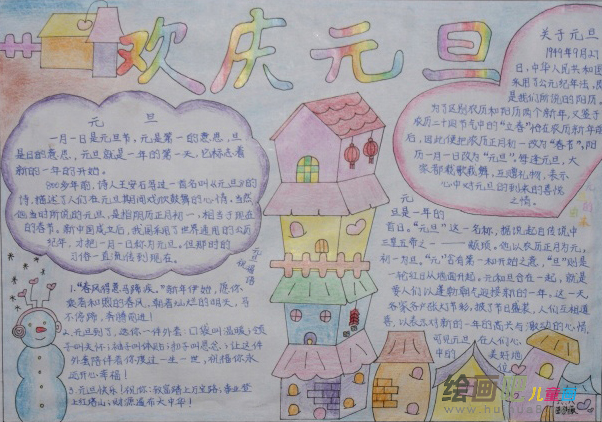 欢庆元旦
元 旦
一月一日是元旦节，元是第一的意思，旦
是日的意思，元旦就是一年的第一天，它标志着
新的一年的开始。
900多年前，诗人王安石写过一首名叫《元旦》的
诗，描述了人们在元旦期间欢欣鼓舞的心情，当然
他当时所说的元旦，是指阴历正月初一，相当于现在
的春节。新中国成立后，我国采用了世界通用的公历
纪年，才把一月一日称为元旦，但那时的
习俗一直流传到现在。
元旦祝福语
1."春风得意马蹄疾。"新年伊始，愿你
乘着和煦的春风，朝着灿烂的明天，马
不停蹄，奔腾前进！
2.元旦到了，送你一件外套：口袋叫温暖；领
子叫关怀；袖子叫体贴；扣子叫思念；让这件
外套陪伴着你渡过一生一世，祝福你永
远开心幸福！
3.元旦快乐！祝你：致富踏上万宝路，事业登
上红塔山，财源遍布大中华！
关于元旦
1949年9月27
日，中华人民共和国
采用了公元纪年法，即
是我们所说的阳历，
为了区别农历和阳历两个新年，又鉴于
农历二十四节气中的"立春"恰在农历新年前
后，因此便把农历正月初一改为"春节"，阳
历一月一日改为"元旦"。每逢元旦，大
家都载歌载舞，互赠礼物，表示
心中对元旦的到来的喜悦
之情。
元
旦是一年的
首日。"元旦"这一名称，据说起自传说中
三皇五帝之一——颛顼，他以农历正月为元，
初一为旦。"元"者有第一和开始之意，"旦"则是
一轮红日从地面升起，元和旦合在一起，就是
要人们以蓬勃朝气迎接新的一年，这一天
各家各户张灯节彩，披了节日盛装，人们互相道
喜，以表达对新的一年的高兴与激动的心情，
可见元旦
在人们心
中的
美好地
位
绘画吧
儿童画
www.huihua8